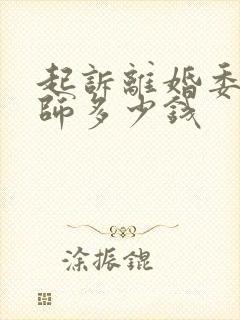 起訴離婚委
師多少錢
涂振錕